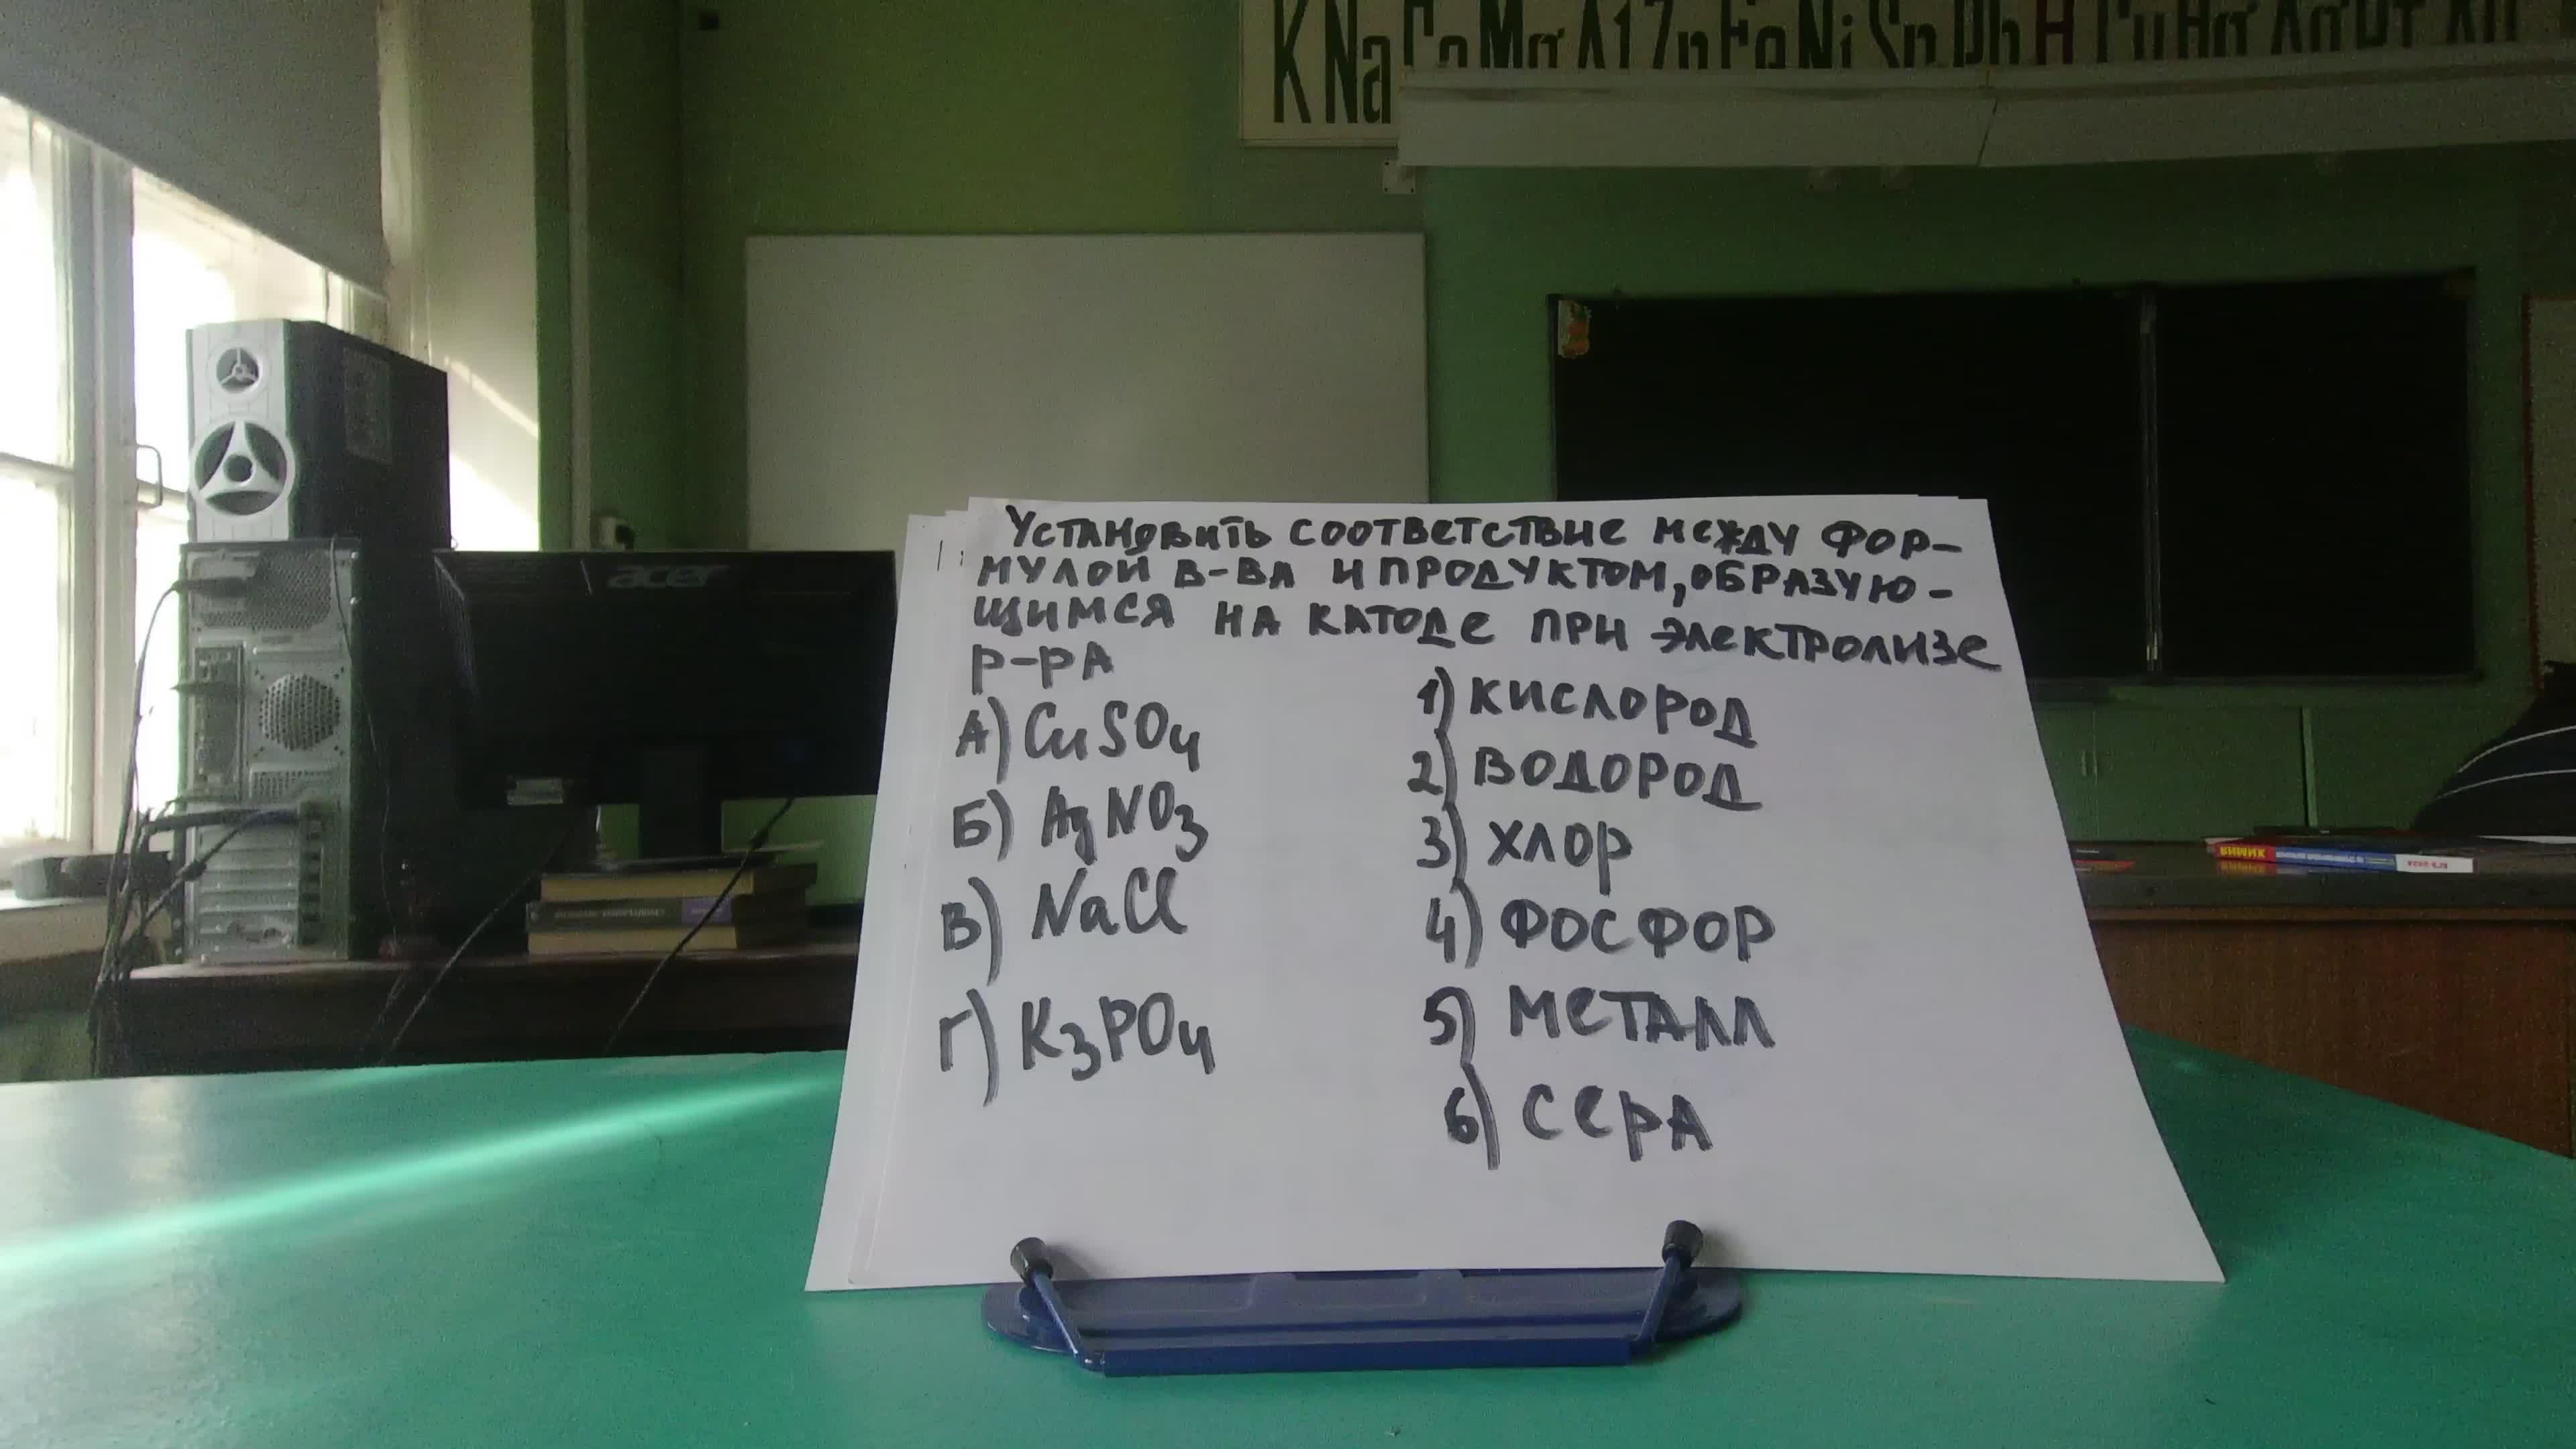 K Na Ca Mg Al Zn Fe Ni Sn Pb H Cu Hg Ag Pt Au
acer
Установить соответствие между фор-
мулой в-ва и продуктом, образую-
щимся на катоде при электролизе
р-ра
А) CuSO4
Б) AgNO3
В) NaCl
Г) K3PO4
1) кислород
2) водород
3) хлор
4) фосфор
5) металл
6) сера